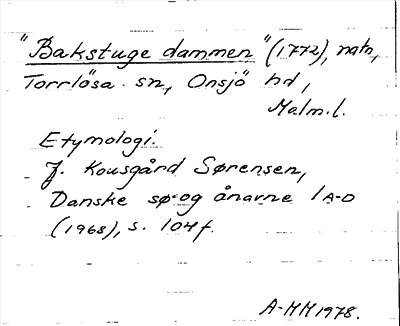 "Bakstuge dammen" (1772), natn,
Torrlösa sn, Onsjö hd,
Malm.l.
Etymologi:
J. Kousgård Sørensen,
Danske sø- og ånavne 1 A-D
(1968), s. 104f.
A-MM 1978.